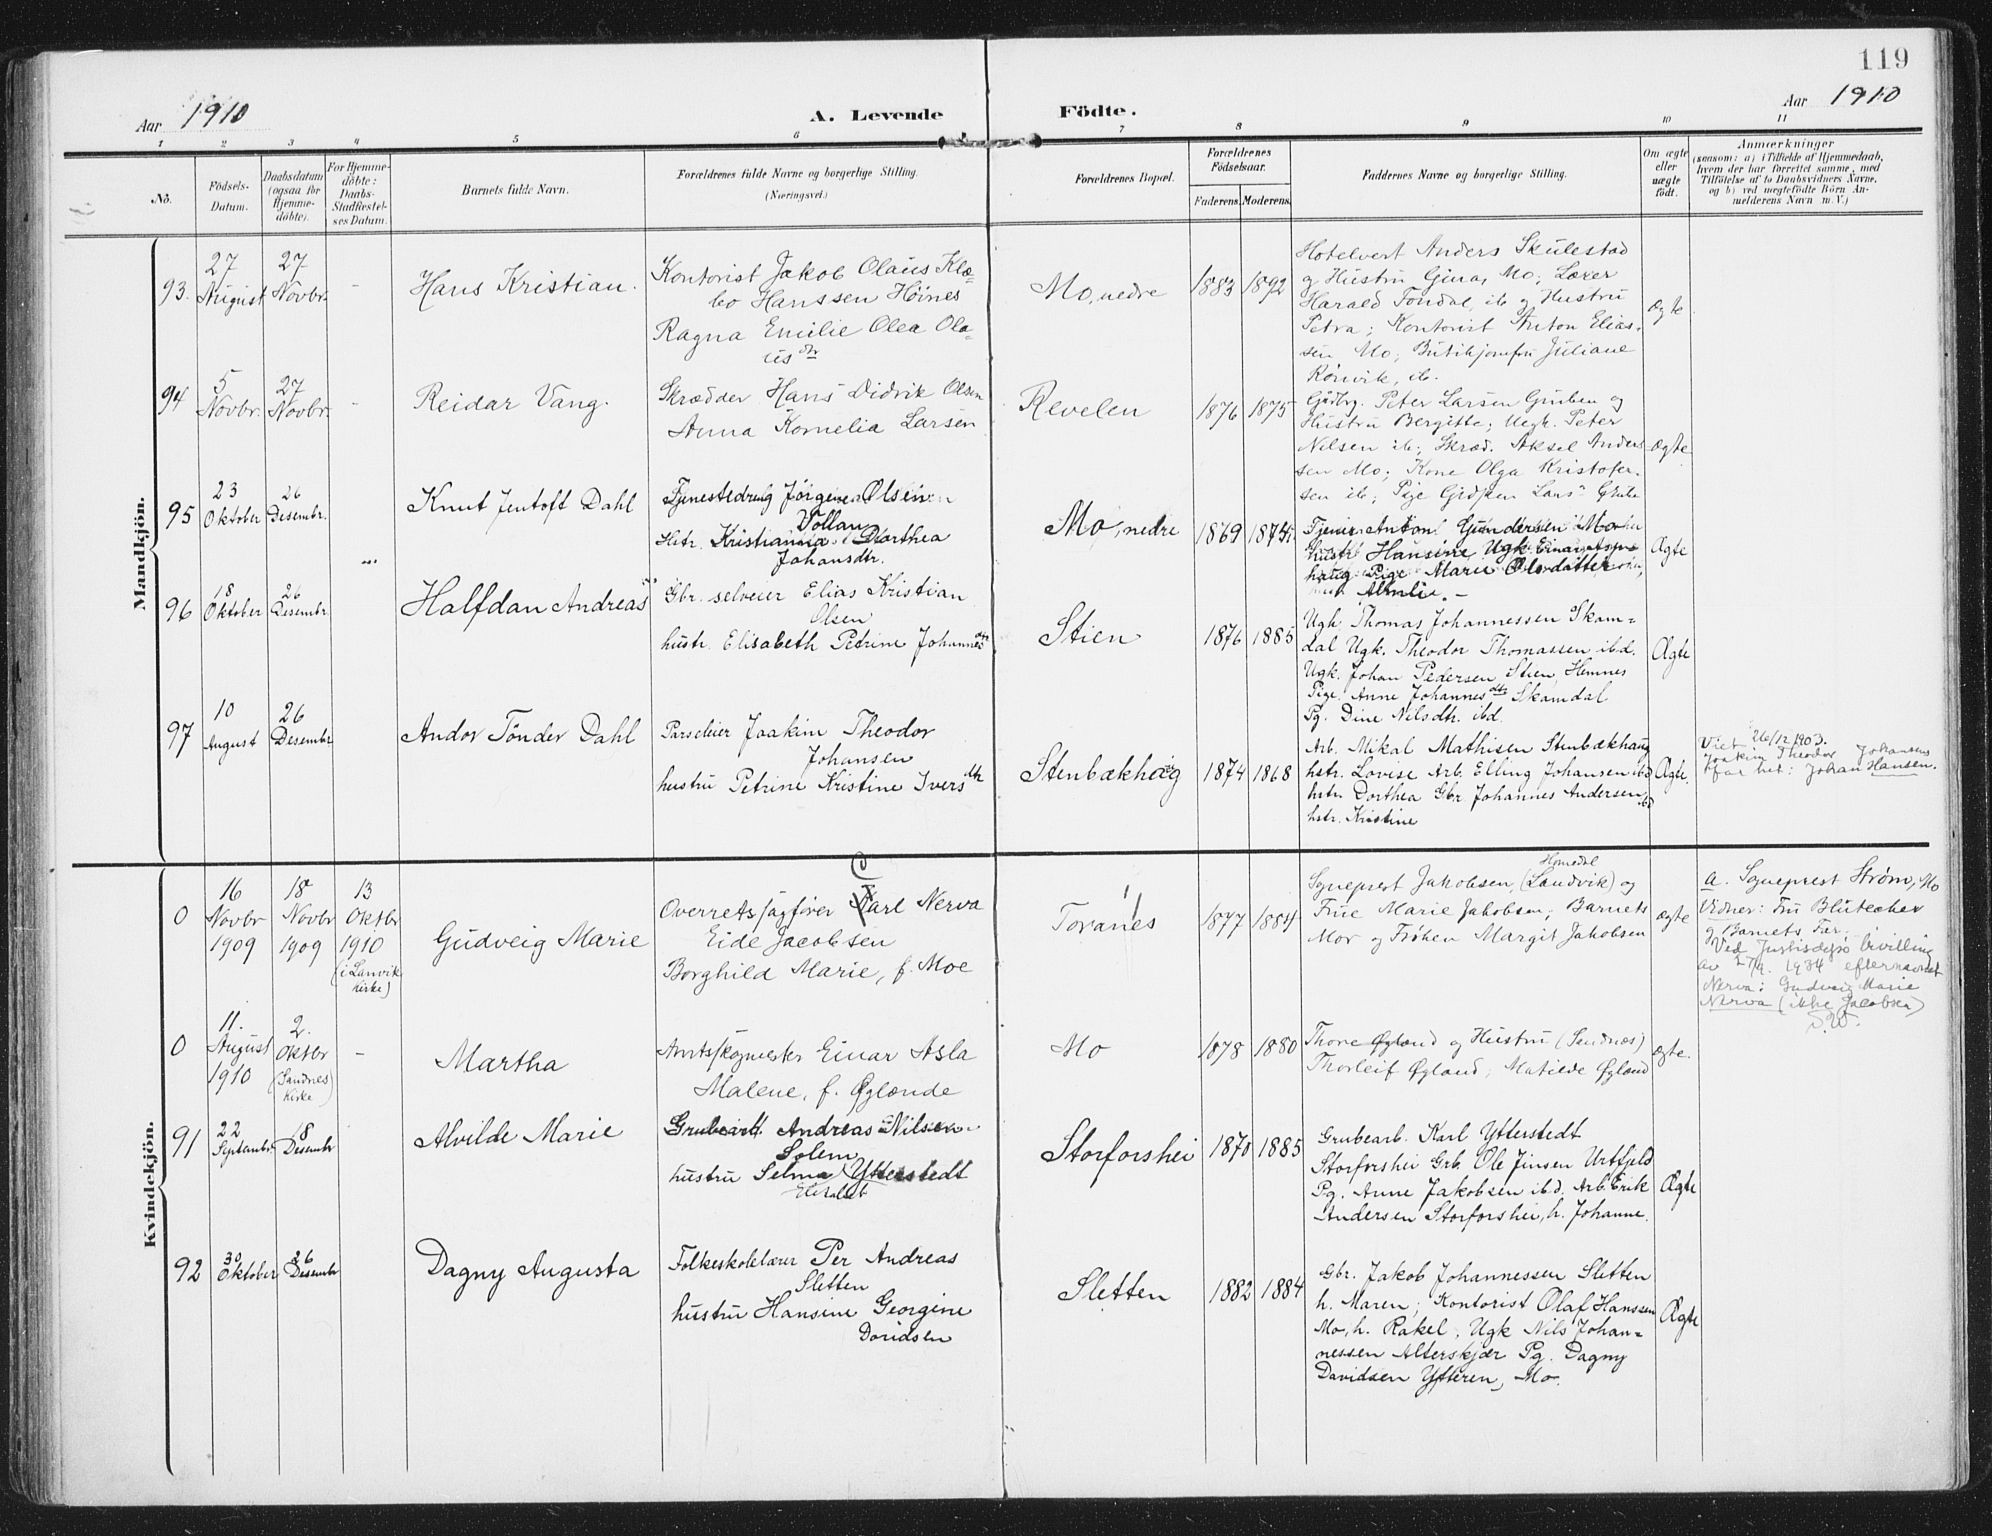 119
Aar 1910
A. Levende
Födte.
Aar 1910
1 2 3 4 5 6 7 8 9 10 11
No.
Födsels-
Datum.
Daabsdatum
(ogsaa for
Hjemme-
döbte).
For Hjemme-
döbte:
Daabs-
Stadfæstel-
ses Datum.
Barnets fulde Navn.
Forældrenes fulde Navne og borgerlige Stilling.
(Næringsvei.)
Forældrenes Bopæl.
Forældrenes
Födselsaar.
Faderens.
Moderens.
Faddernes Navne og borgerlige Stilling.
Om ægte
eller
uægte
födt.
Anmærkninger
(saasom: a) i Tilfælde af Hjemmedaab,
hvem der har forrettet samme, med
Tilföielse af to Daabsvidners Navne,
og b) ved uægtefödte Börn An-
melderens Navn m. V.)
Mandkjön.
93.
27
August
27
Novbr.
-
Hans Kristian.
Kontorist Jakob Olaus Klæ-
bo Hanssen Höines
Ragna Emilie Olea Ola-
us dtr
Mo, nedre
1883
1892
Hotelvert Anders Skulestad
og Hustru Gina, Mo; Lærer
Harald Tondal, ib og Hustru
Petra; Kontorist Anton Elias-
sen Mo; Butikjomfru Juliane
Rönvik, ib.
ægte
94
5
Novbr.
27
Novbr.
-
Reidar Vang.
Skrædder Hans Didrik Olsen
Anna Kornelia Larsen
Revelen
1876
1875
Gårdbrg. Peter Larsen Gruben og
Hustru Bergitte; Ungk. Peter
Nilsen ib; Skræd. Aksel Anders
sen Mo; Kone Olga Kristofer-
sen ib; Pige
ægte
95
23
Oktober
26
Desembr.
Knut Jentoft Dahl
Tjenestedreng Jörgen Olsen
Vollan
Hstr. Kristianna Dorthea
Johansdtr.
Mo, nedre
1869
1874
Anton Gundersen Mo
hustr Hansine Ugk. Einar
haug Pige Marie Olsdatter
Almlie. -
Ægte
96
18
Oktober
26
Desembr.
Halfdan Andreas
Gbr. selveier Elias Kristian
Olsen
hustr. Elisabeth Petrine Johannes dtr
Stien
1876
1885
Ugk Thomas Johannessen Skam-
dal Ugk. Theodor Thomassen ibd.
Ugk. Johan Pedersen Stien, Hemnes
Pige. Anne Johannes dtr Skamdal
Pg. Dine Nilsdtr. ibd.
Ægte
97
10
August
26
Desembr
Andor Tönder Dahl
Parseleier Joakim Theodor
Johansen
hustru Petrine Kristine Ivers dtr
Stenbækhaug
1874
1868
Arb. Mikal Mathisen Stenbækhaug
hstr. Lovise Arb. Elling Johansen ibd
hstr. Dorthea Gbr Johannes Andersen ibd
hstr. Kristine
Ægte.
Viet 26/12 1903.
Joakim Theodor Johansens
far het: Johan Hansen.
Kvindekjön.
0
16
Novbr
1909
18
Novbr
1909
13
Oktbr
1910
(i Lanvik
kirke)
Gudveig Marie
Overretssagförer Carl Nerva
Eide Jacobsen
Borghild Marie, f. Moe
Toranes
1877
1884
Homedal
Sogneprest Jakobsen, (Landvik) og
Frue Marie Jakobsen; Barnets
Mor og Fröken Margit Jakobsen
ægte
a. Sogneprest Ström, Mo
Vidner: Fru Blütecher
og Barnets Far.
Ved Justisdeps bevilling
av 27/9. 1934 efternavnet
Nerva: Gudveig Marie
Nerva (ikke Jacobsen)
0
11.
August
1910
2.
Oktbr
(Sandnes
kirke)
-
Martha
Amtsskogmester Einar Asla
Malene, f. Øglænde
Mo
1878
1880
Thore Øgland og Hustru (Sandnæs)
Thorleif Øgland; Matilde Øglænd
ægte.
91
22
Septembr.
18
Desembr
Alvilde Marie
Grubearb. Andreas Nilsen
Solem
hustru Selma Ytterstedt
Elisabet
Storforshei
1870
1885
Grubearb. Karl Ytterstedt
Storforshei Grb. Ole Jinsen Urtfjeld
Pg. Anne Jakobsen ibd. Arb. Erik
Andersen Storforshei, h. Johanne.
Ægte
92
30
Oktober
26
Desembr
Dagny Augusta
Folkeskolelærer Per Andreas
Sletten
hustru Hansine Georgine
Doridsen
Sletten
1882
1884
Gbr. Jakob Johannessen Sletten
h. Maren; Kontorist Olaf Hanssen
Mo, h. Rakel; Ugk Nils Johan-
nessen Alterskjær Pg. Dagny
Davidsen Ytteren, Mo.
Ægte